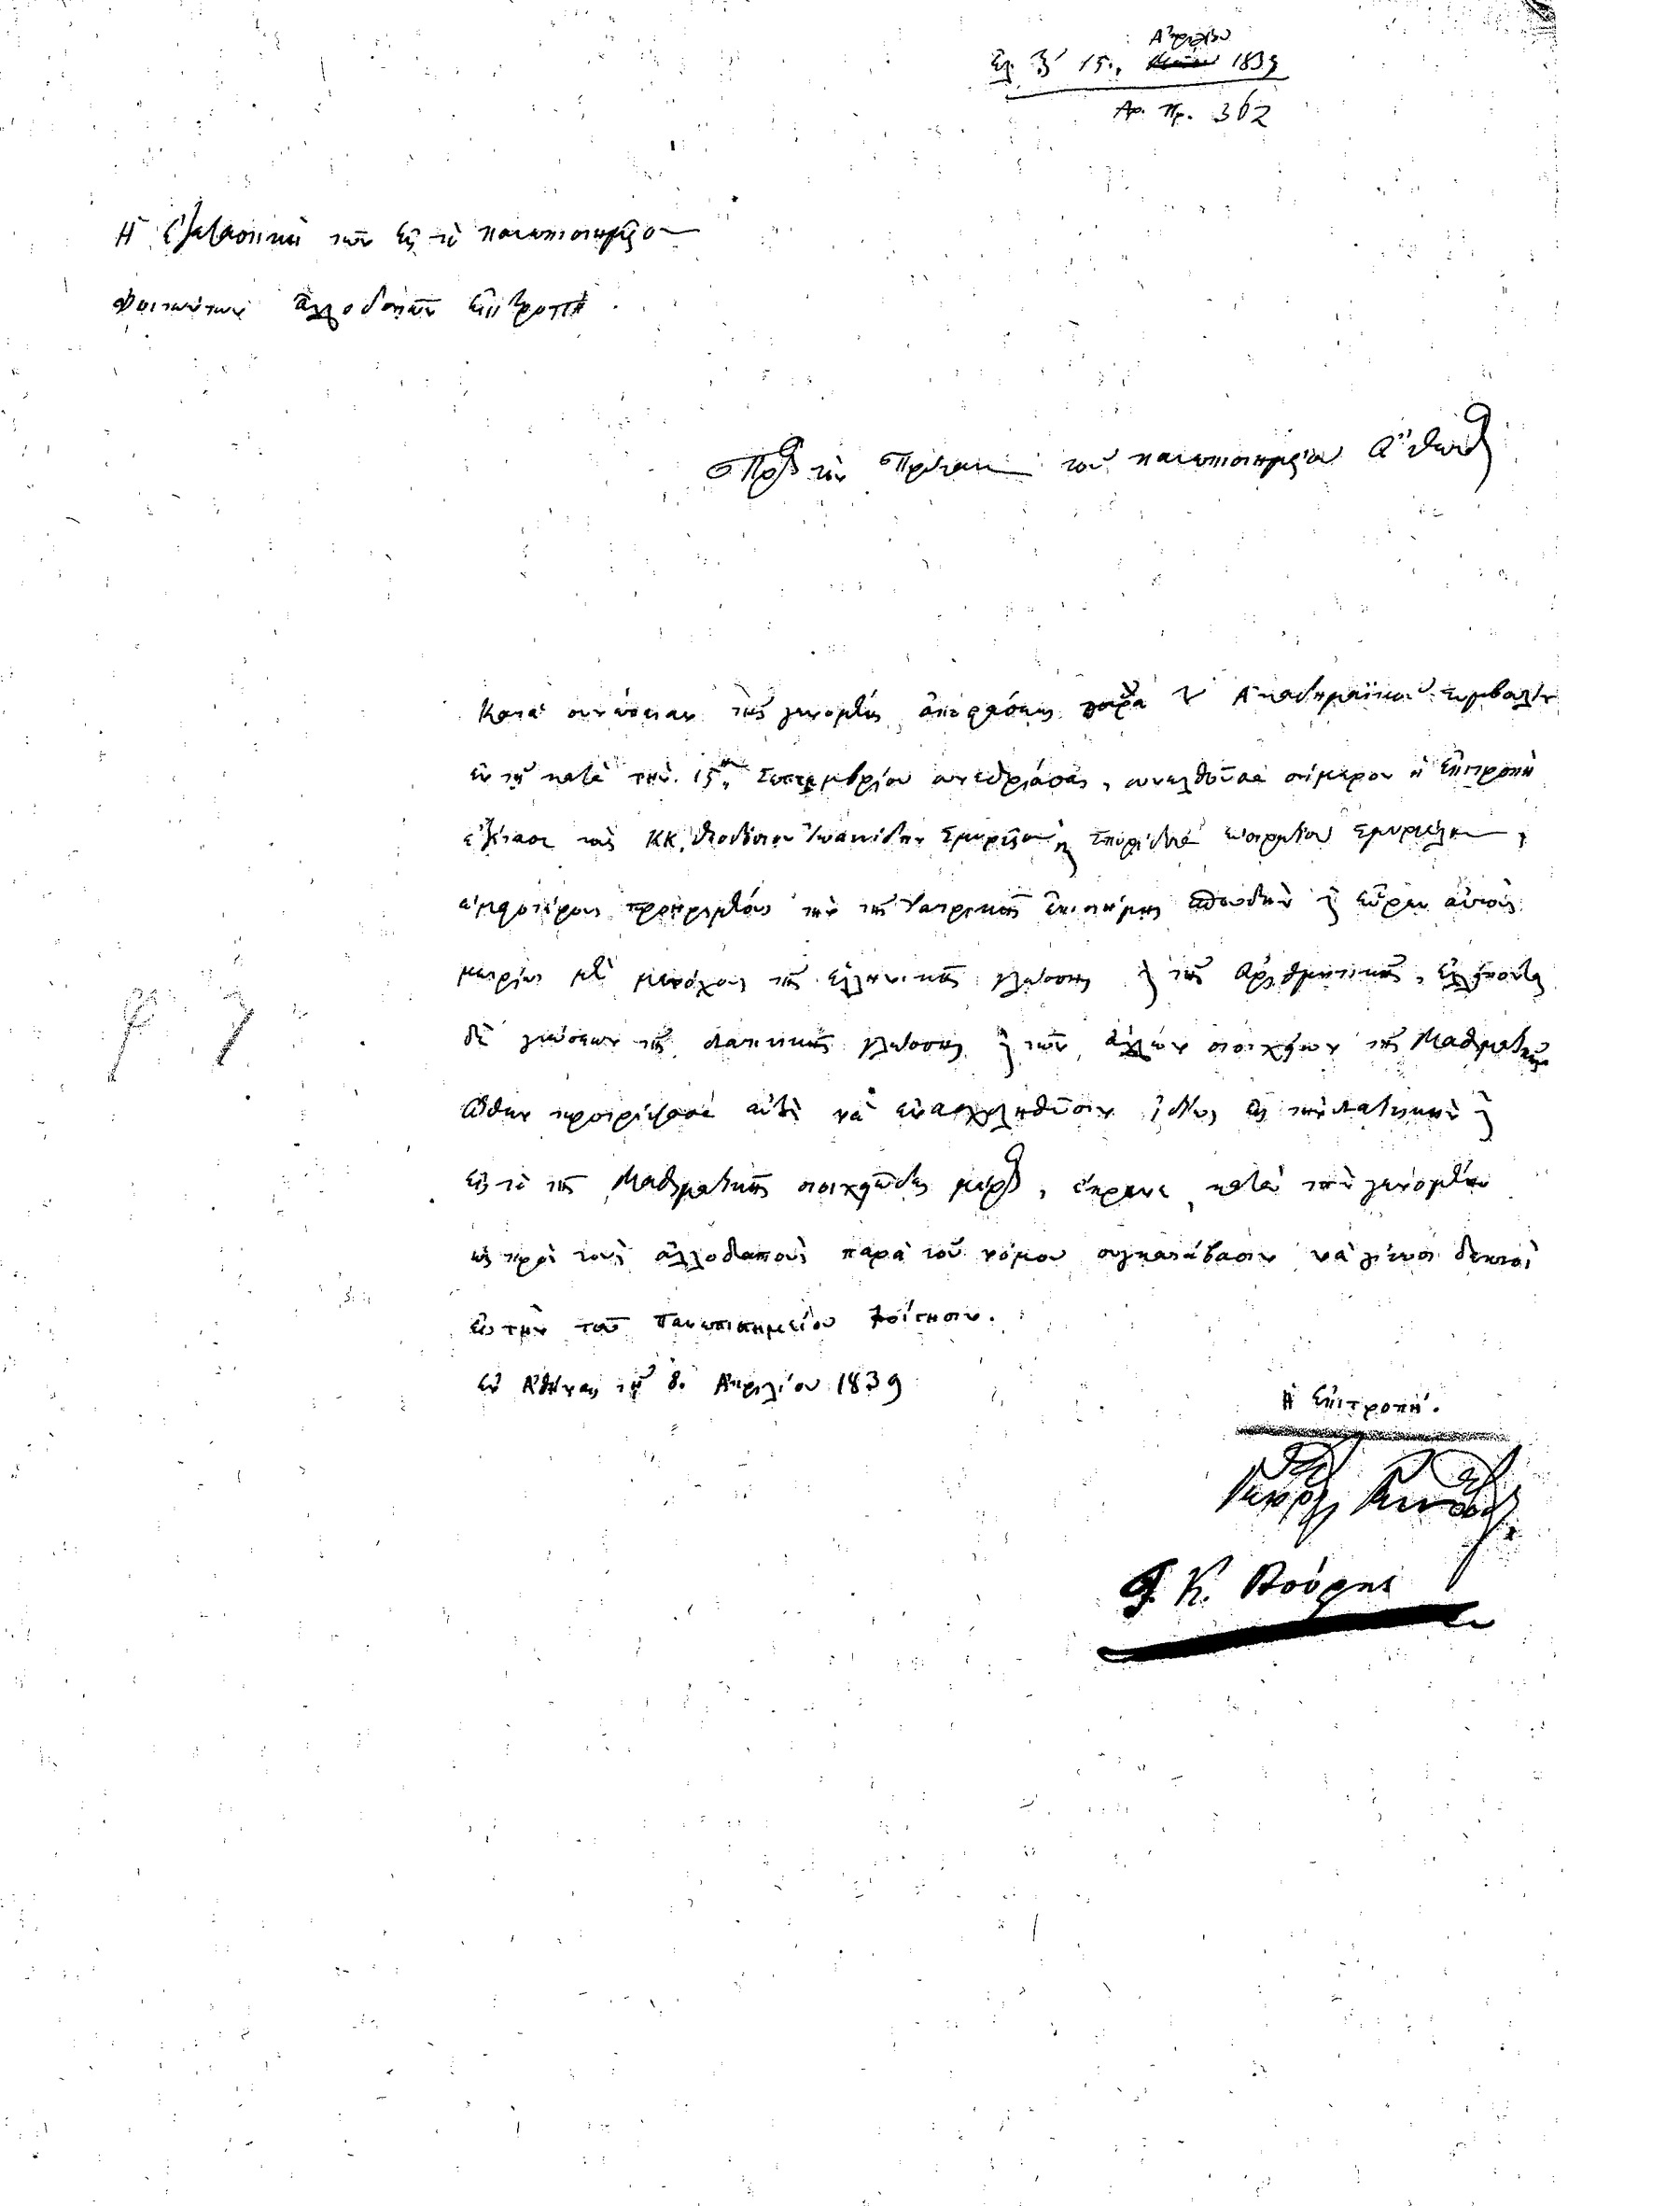 Ἀπριλίου
Ἐλ. τῇ 15. 1839
Αρ. Πρ. 362
Ἡ ἐξεταστικὴ τῶν εἰς τὸ πανεπιστημεῖον
Φοιτώντων ἀλλοδαπῶν Ἐπιτροπὴ
Πρὸς τὸν Πρύτανιν τοῦ πανεπιστημείου
Κατὰ συνέπειαν τῆς γενομένης ἀποφάσεως παρὰ τοῦ Ἀκαδημαϊκοῦ Συμβουλίου
ἐν τῇ κατὰ τὴν 15ην Σεπτεμβρίου συνεδριάσει, συνελθοῦσα σήμερον ἡ Ἐπιτροπὴ
ἐξέτασε τοὺς ΚΚ. Θεοδόσιον Ἰωαννίδην Σμυρναῖον καὶ Σπυρίδωνα Σμυρναῖον,
ἀμφοτέρους προῃρημένους τὴν τῆς Ἰατρικῆς ἐπιστήμης σπουδὴν καὶ εὗρεν αὐτοὺς
μετρίως μὲν μετόχους τῆς ἑλληνικῆς γλώσσης καὶ τῆς Ἀριθμητικῆς, ἐλλείποντας
δὲ γνώσεων τῆς λατινικῆς γλώσσης καὶ τῶν ἄλλων στοιχείων τῆς Μαθηματικῆς
Ὅθεν προτρέψασα αὐτοὺς νὰ ἐνασχοληθῶσιν ἰδίως εἰς τὴν λατινικὴν καὶ
εἰς τὸ τῆς Μαθηματικῆς στοιχειῶδες μέρος, ἔκρινε κατὰ τὴν γενομένην
ὡς πρὸς τοὺς ἀλλοδαποὺς παρὰ τοῦ νόμου συγκατάβασιν νὰ γίνωσι δεκτοὶ
εἰς τὴν τοῦ Πανεπιστημείου φοίτησιν.
Ἐν Ἀθήναις τῇ 8. Ἀπριλίου 1839
Ἡ Ἐπιτροπή.
Γ. Κ. Βούρης